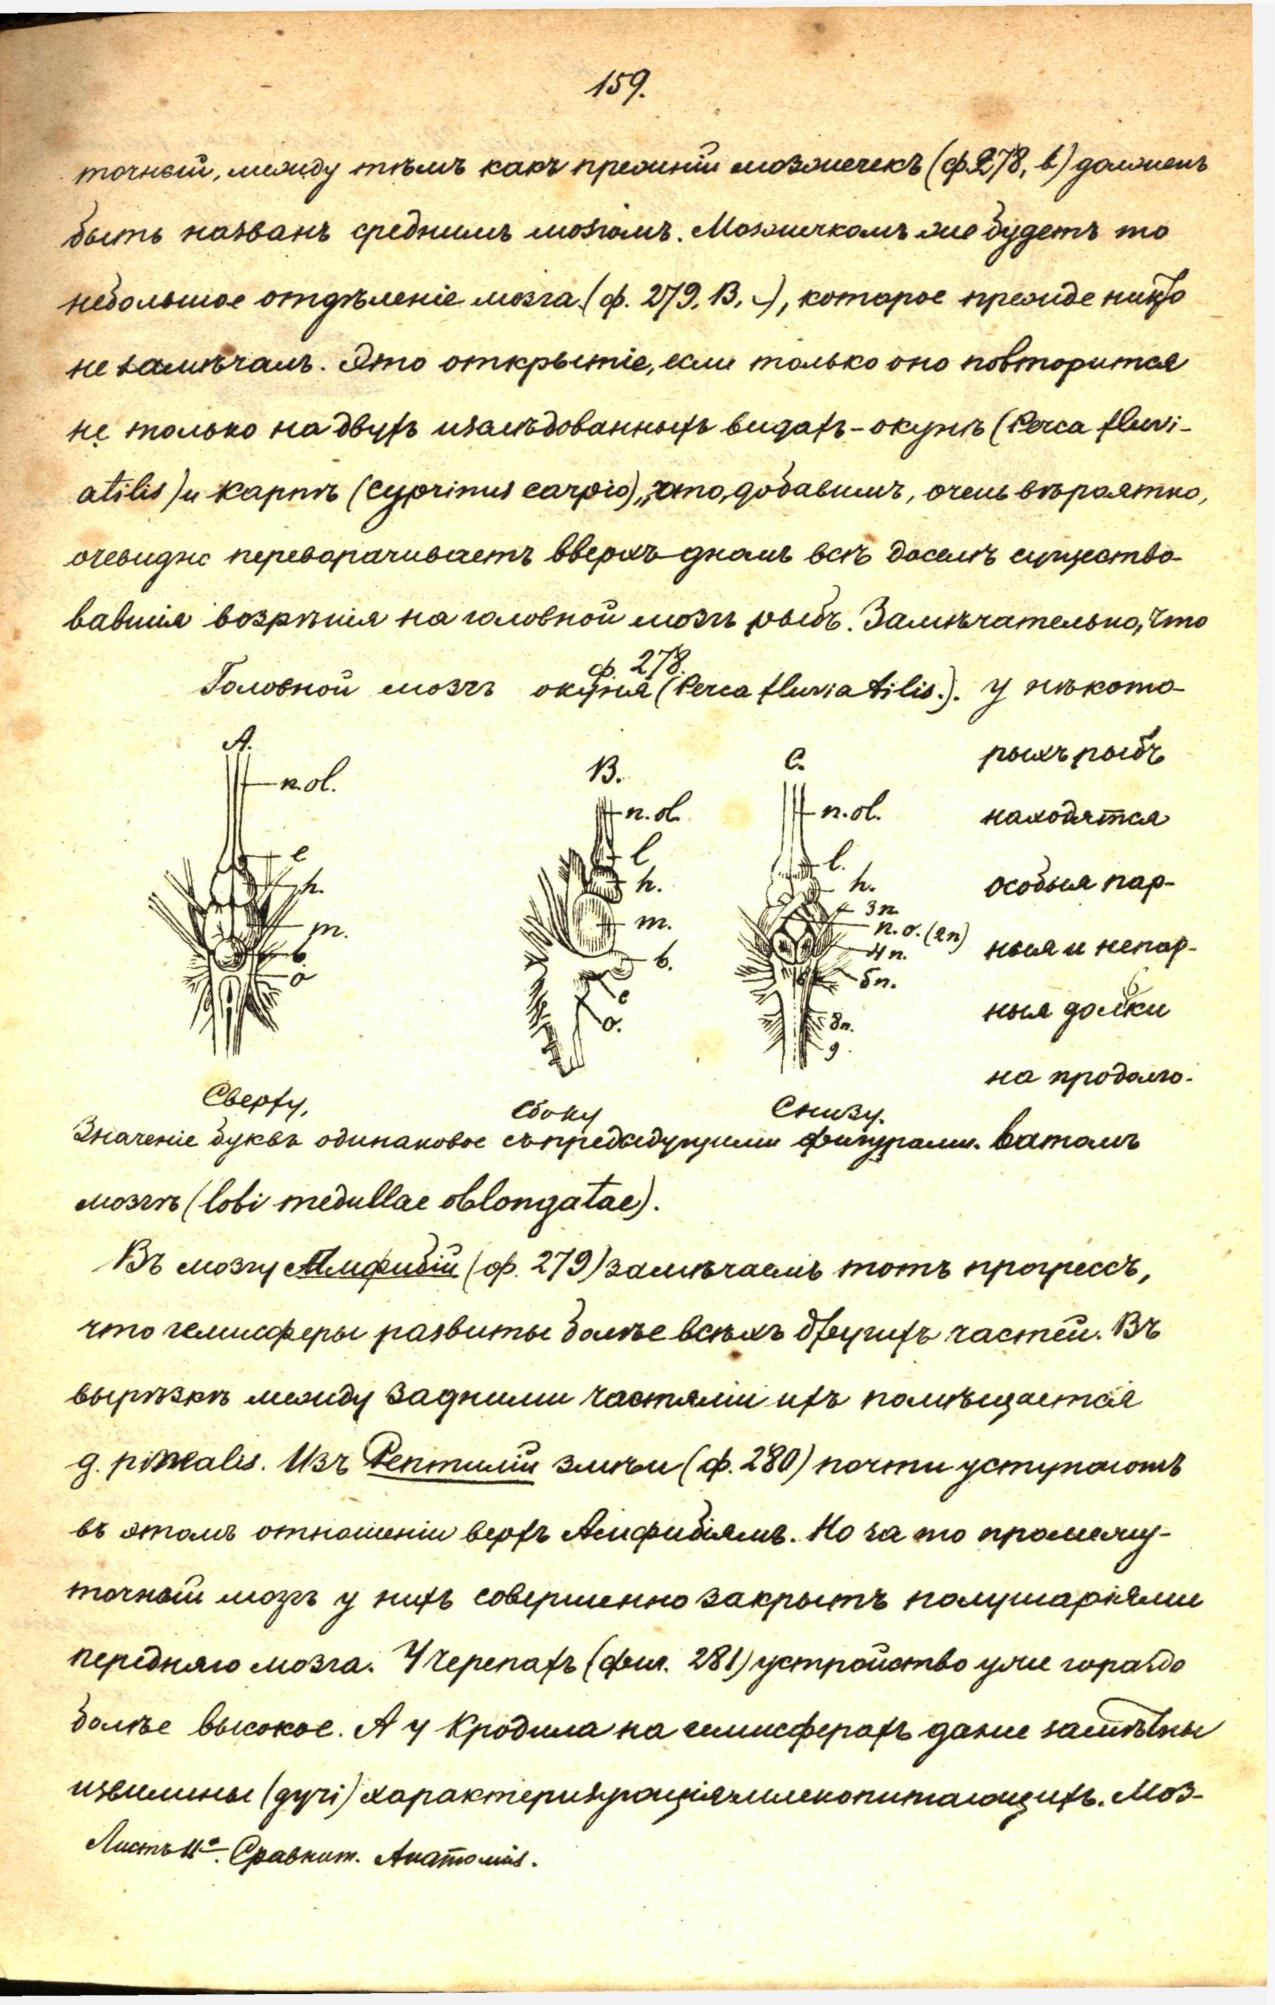 159.
точный, между тѣмъ какъ прежній мозжечекъ (ф. 278, b) долженъ
быть названъ среднимъ мозгомъ. Мозжечкомъ же будетъ то
небольшое отдѣленіе мозга (ф. 279, B, ), которое прежде никто
не замѣчалъ. Это открытіе, если только оно повторится
не только на двухъ изслѣдованныхъ видахъ - окунѣ (Perca fluvi-
atilis) и карпѣ (Cyprinus carpio), что, добавимъ, очень вѣроятно,
очевидно переворачиваетъ вверхъ дномъ всѣ доселѣ существо-
вавшія воззрѣнія на головной мозгъ рыбъ. Замѣчательно, что
ф. 278.
Головной мозгъ окуня (Perca fluviatilis.).
у нѣкото-
рыхъ рыбъ
находятся
особыя пар-
ныя и непар-
ныя дольки
на продолго-
A.
n.ol.
l
h.
m.
b.
o
Сверху.
B.
n.ol.
l
h.
m.
b.
c
o.
Сбоку
C.
n.ol.
l.
h.
3п.
n.o. (2п)
4п.
5п.
8п.
9.
Снизу.
Значеніе буквъ одинаковое съ предыдущими фигурами.
ватомъ
мозгѣ (lobi medullae oblongatae).
Въ мозгу Амфибій (ф. 279) замѣчаемъ тотъ прогрессъ,
что гемисферы развиты болѣе всѣхъ другихъ частей. Въ
вырѣзкѣ между задними частями ихъ помѣщается
g. pinealis. Изъ Рептилій змѣи (ф. 280) почти уступаютъ
въ этомъ отношеніи верхъ Амфибіямъ. Но за то промежу-
точный мозгъ у нихъ совершенно закрытъ полушаріями
передняго мозга. У черепахъ (фиг. 281) устройство уже гораздо
болѣе высокое. А у Кродила на гемисферахъ даже замѣтны
извилины (gyri) характеризующія млекопитающихъ. Моз-
Листъ 11й. Сравнит. Анатоміи.